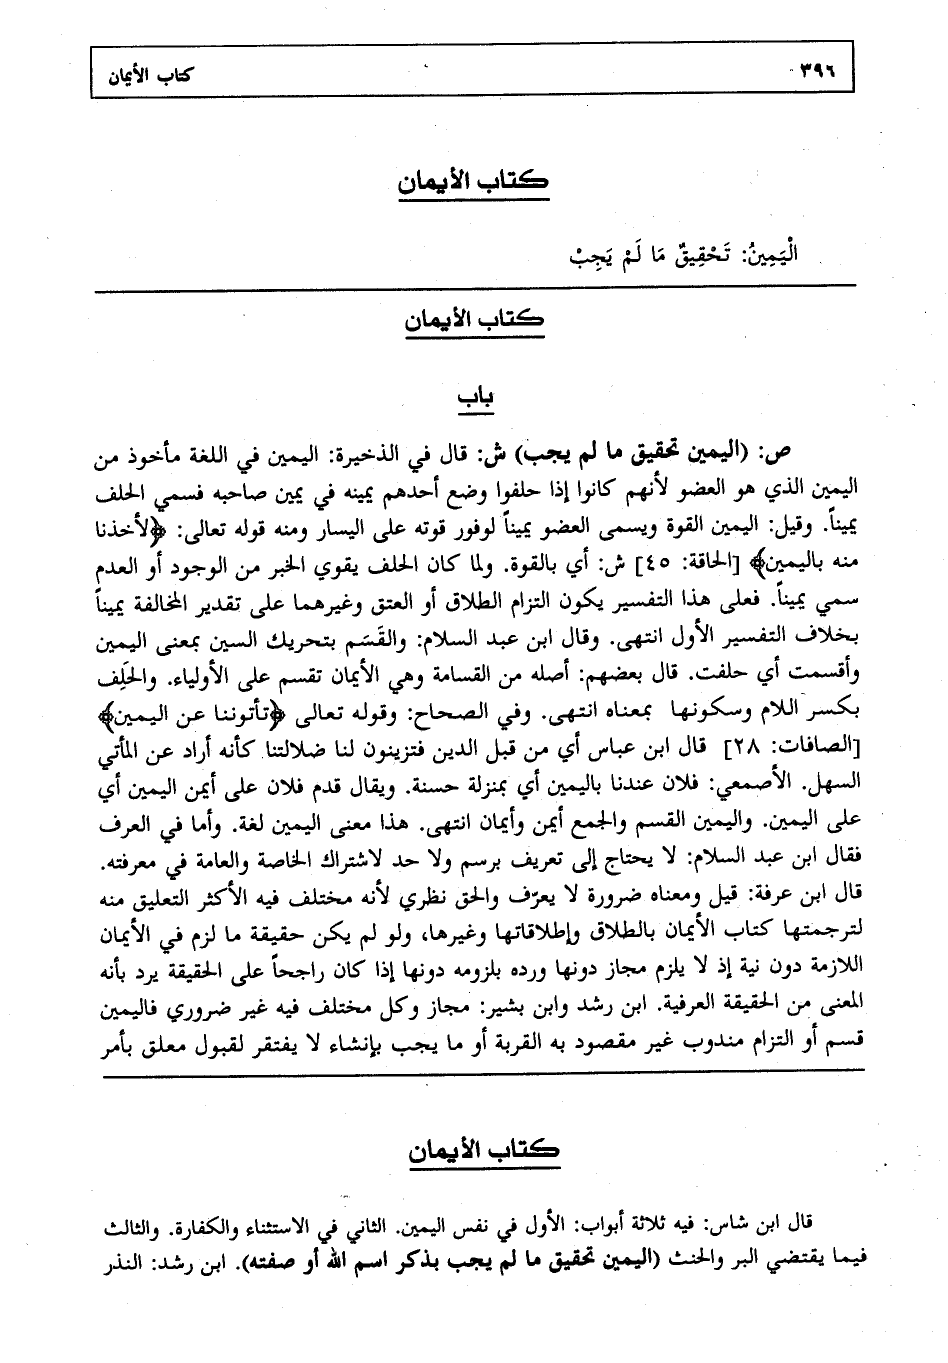 ٣٩٦ كتاب الأيمان
كتاب الأيمان
الْيَمِينُ: تَحْقِيقٌ مَا لَمْ يَجِبْ
كتاب الأيمان
باب
ص: (اليمين تحقيق ما لم يجب) ش: قال في الذخيرة: اليمين في اللغة مأخوذ من
اليمين الذي هو العضو لأنهم كانوا إذا حلفوا وضع أحدهم يمينه في يمين صاحبه فسمي الحلف
يميناً. وقيل: اليمين القوة ويسمى العضو يميناً لوفور قوته على اليسار ومنه قوله تعالى: ﴿لأخذنا
منه باليمين﴾ [الحاقة: ٤٥] ش: أي بالقوة. ولما كان الحلف يقوي الخبر من الوجود أو العدم
سمي يميناً. فعلى هذا التفسير يكون التزام الطلاق أو العتق وغيرهما على تقدير المخالفة يميناً
بخلاف التفسير الأول انتهى. وقال ابن عبد السلام: والقَسَم بتحريك السين بمعنى اليمين
وأقسمت أي حلفت. قال بعضهم: أصله من القسامة وهي الأيمان تقسم على الأولياء. والحَلِف
بكسر اللام وسكونها بمعناه انتهى. وفي الصحاح: وقوله تعالى ﴿تأتوننا عن اليمين﴾
[الصافات: ٢٨] قال ابن عباس أي من قبل الدين فتزينون لنا ضلالتنا كأنه أراد عن المأتي
السهل. الأصمعي: فلان عندنا باليمين أي بمنزلة حسنة. ويقال قدم فلان على أيمن اليمين أي
على اليمين. واليمين القسم والجمع أيمن وأيمان انتهى. هذا معنى اليمين لغة. وأما في العرف
فقال ابن عبد السلام: لا يحتاج إلى تعريف برسم ولا حد لاشتراك الخاصة والعامة في معرفته.
قال ابن عرفة: قيل ومعناه ضرورة لا يعرّف والحق نظري لأنه مختلف فيه الأكثر التعليق منه
لترجمتها كتاب الأيمان بالطلاق وإطلاقاتها وغيرها، ولو لم يكن حقيقة ما لزم في الأيمان
اللازمة دون نية إذ لا يلزم مجاز دونها ورده بلزومه دونها إذا كان راجحاً على الحقيقة يرد بأنه
المعنى من الحقيقة العرفية. ابن رشد وابن بشير: مجاز وكل مختلف فيه غير ضروري فاليمين
قسم أو التزام مندوب غير مقصود به القربة أو ما يجب بإنشاء لا يفتقر لقبول معلق بأمر
كتاب الأيمان
قال ابن شاس: فيه ثلاثة أبواب: الأول في نفس اليمين. الثاني في الاستثناء والكفارة. والثالث
فيما يقتضي البر والحنث (اليمين تحقيق ما لم يجب بذكر اسم الله أو صفته). ابن رشد: النذر